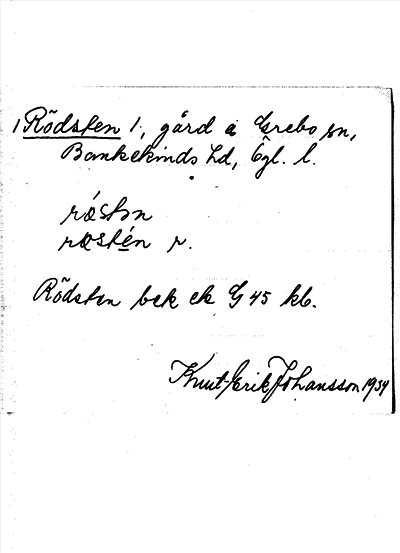 1 Rödsten 1., gård i Grebo sn,
Bankekinds hd, Ögl. l.
rǿstn
røstén r.
Rödsten bek ek G 45 kb.
Knut-Erik Johansson 1934